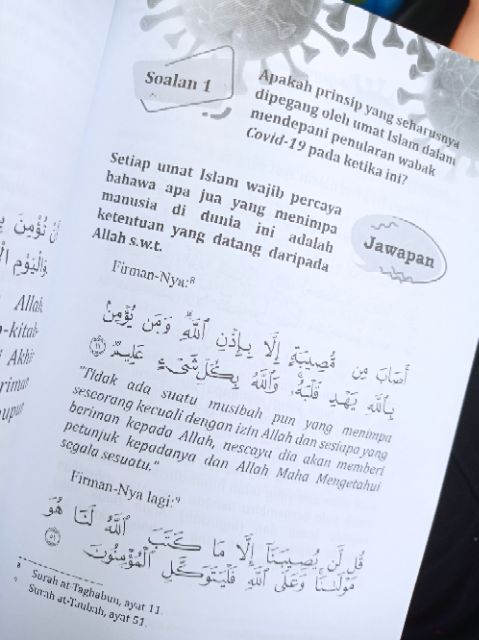 أَن تُؤْمِنَ
وَالْيَوْمِ
Allah,
-kitab-
Akhir
riman
upun
Soalan 1
Apakah prinsip yang seharusnya
dipegang oleh umat Islam dalam
mendepani penularan wabak
Covid-19 pada ketika ini?
Setiap umat Islam wajib percaya
bahawa apa jua yang menimpa
manusia di dunia ini adalah
ketentuan yang datang daripada
Allah s.w.t.
Jawapan
Firman-Nya:⁸
أَصَابَ مِن مُّصِيبَةٍ إِلَّا بِإِذْنِ ٱللَّهِ ۗ وَمَن يُؤْمِنۢ
بِٱللَّهِ يَهْدِ قَلْبَهُۥ ۚ وَٱللَّهُ بِكُلِّ شَىْءٍ عَلِيمٌ ١١
"Tidak ada suatu musibah pun yang menimpa
seseorang kecuali dengan izin Allah dan sesiapa yang
beriman kepada Allah, nescaya dia akan memberi
petunjuk kepadanya dan Allah Maha Mengetahui
segala sesuatu."
Firman-Nya lagi:⁹
قُل لَّن يُصِيبَنَآ إِلَّا مَا كَتَبَ ٱللَّهُ لَنَا هُوَ
مَوْلَىٰنَا ۚ وَعَلَى ٱللَّهِ فَلْيَتَوَكَّلِ ٱلْمُؤْمِنُونَ ٥١
8 Surah at-Taghabun, ayat 11.
9 Surah at-Taubah, ayat 51.